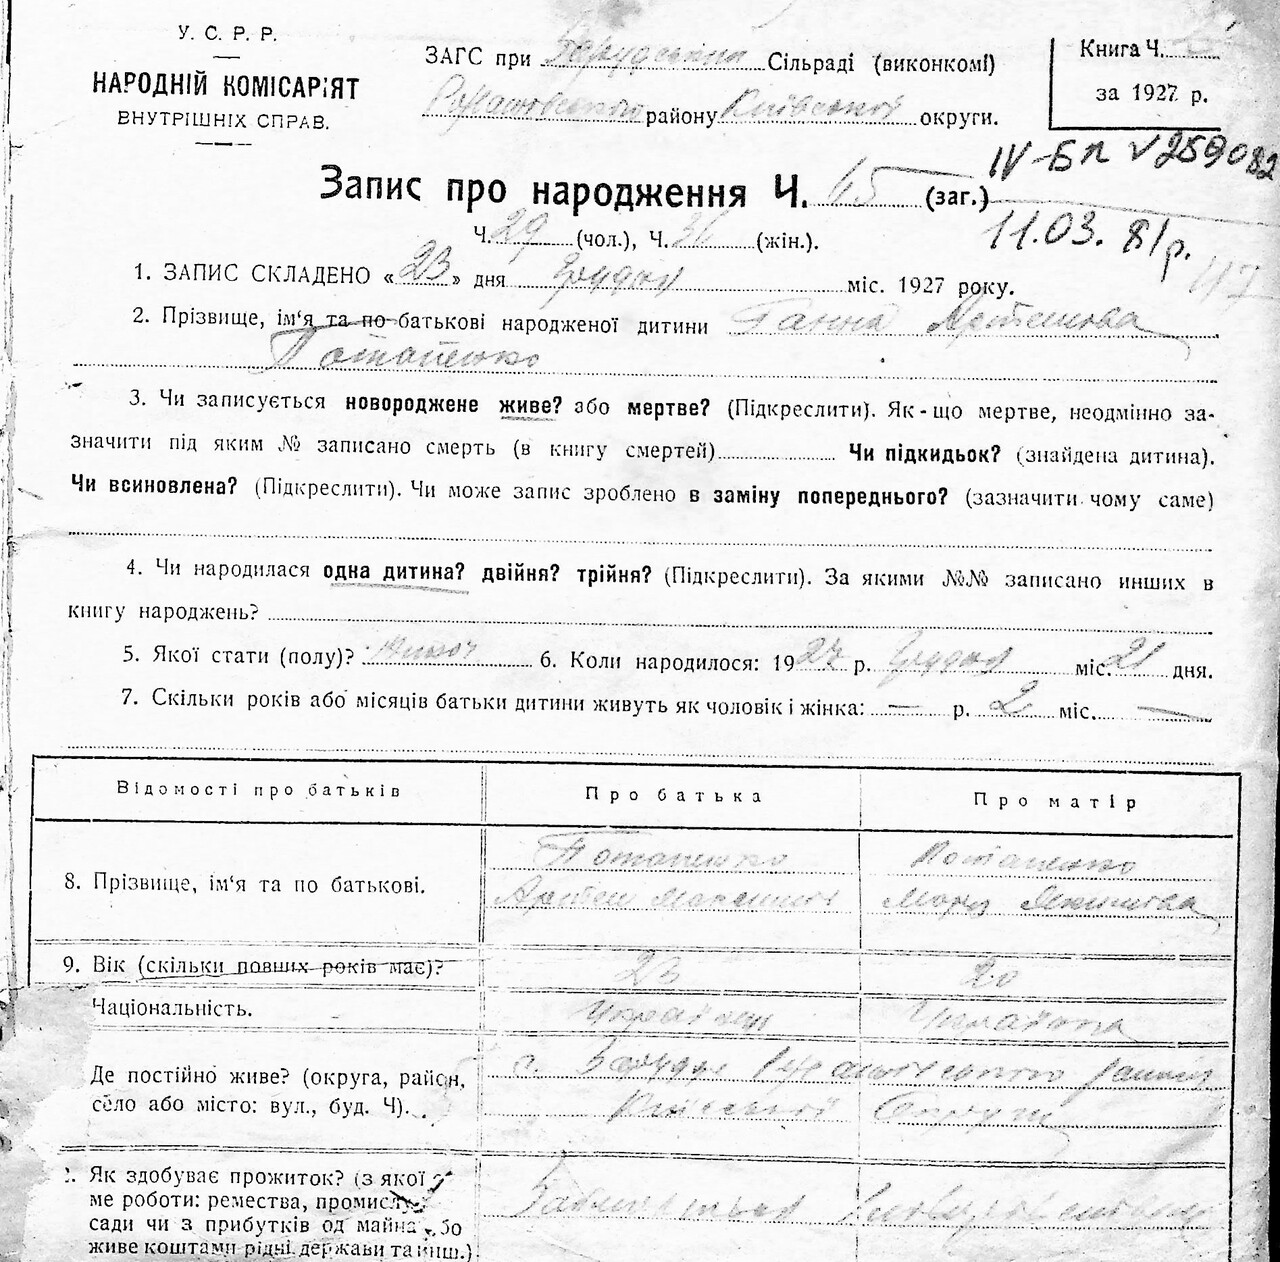 У. С. Р. Р.
НАРОДНІЙ КОМІСАРІЯТ
ВНУТРІШНІХ СПРАВ.
ЗАГС при Сільраді (виконкомі)
району Київської округи.
Книга Ч.
за 1927 р.
IV-БК №259082
11.03.81р.
Запис про народження Ч. 65 (заг.)
Ч. 29 (чол.), Ч. 36 (жін.).
1. ЗАПИС СКЛАДЕНО «23» дня Грудня міс. 1927 року.
2. Прізвище, ім‘я та по-батькові народженої дитини Ганна Артемова
Потапенко
3. Чи записується новороджене живе? або мертве? (Підкреслити). Як-що мертве, неодмінно за-
значити під яким № записано смерть (в книгу смертей) Чи підкидьок? (знайдена дитина).
Чи всиновлена? (Підкреслити). Чи може запис зроблено в заміну попереднього? (зазначити чому саме)
4. Чи народилася одна дитина? двійня? трійня? (Підкреслити). За якими №№ записано инших в
книгу народжень?
5. Якої стати (полу)? 6. Коли народилося: 1927 р. Грудня міс. 21 дня.
7. Скільки років або місяців батьки дитини живуть як чоловік і жінка: — р. 2 міс. —
Відомості про батьків Про батька Про матір
8. Прізвище, ім‘я та по батькові.
Потапенко Потапенко
Артем Максимов
9. Вік (скільки повних років має)? 23 20
Національність.
Де постійно живе? (округа, район,
село або місто: вул., буд. Ч).
с. району
Київської Округи
Як здобуває прожиток? (з якої
ме роботи: ремества, промислу,
сади чи з прибутків од майна або
живе коштами рідні, держави та инш.)